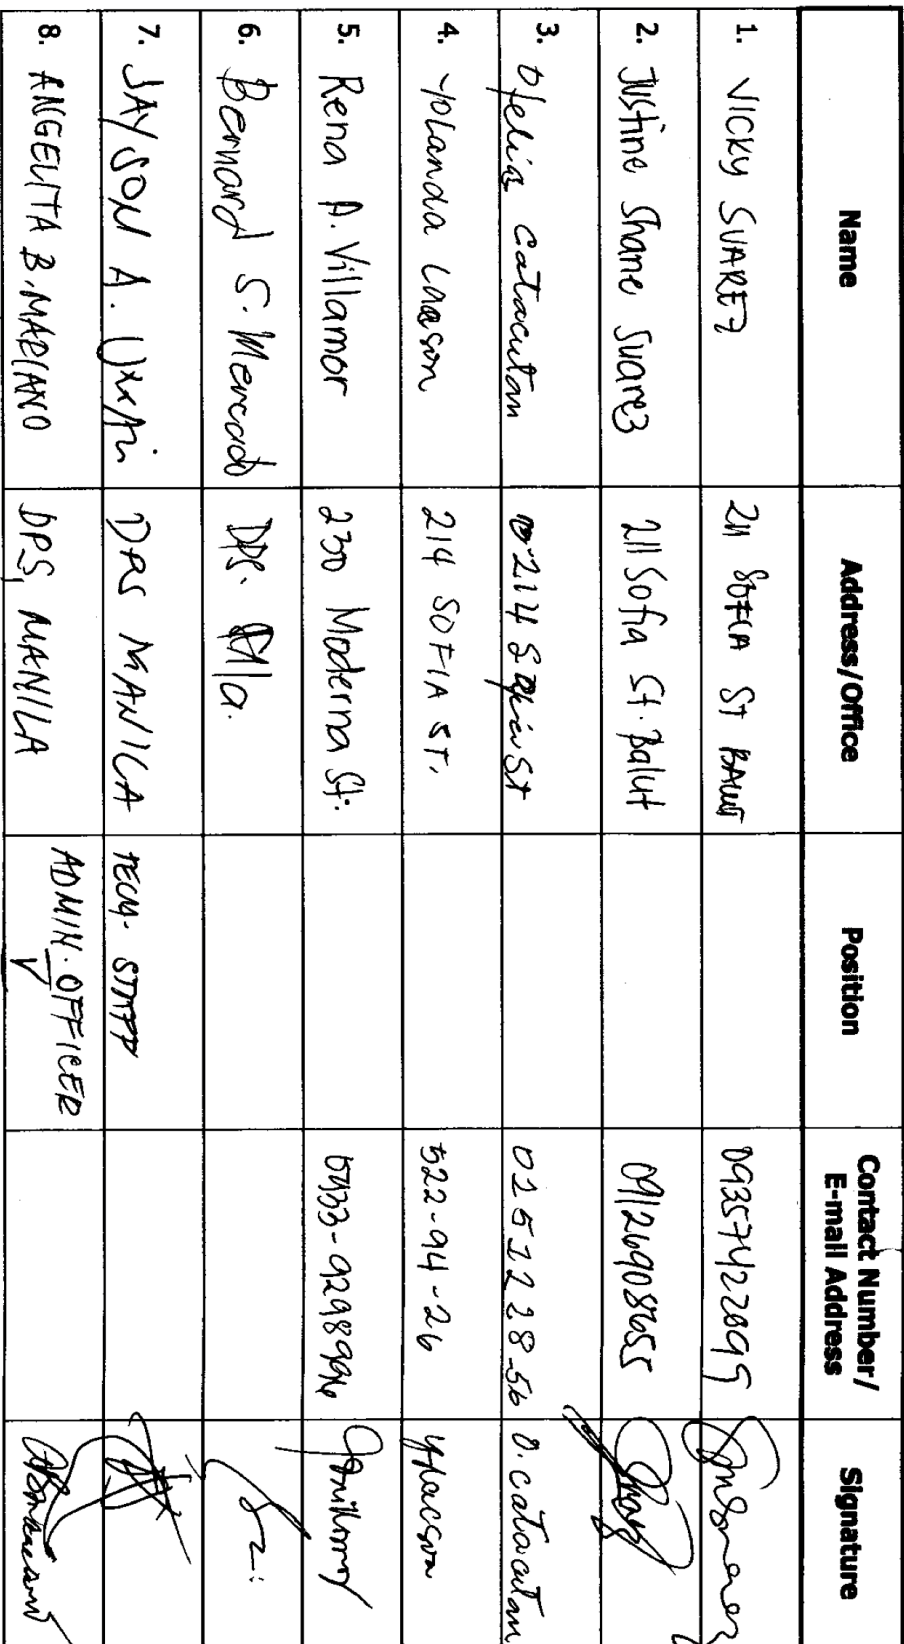 Name Address/Office Position Contact Number/ E-mail Address Signature
1. VICKY SUAREZ 211 SOFIA ST BALUT
2. Justine Shane Suarez 211 Sofia St. Balut
3. Ofelia Catacutan 214 Sofia St O. catacutan
4. Yolanda Lacson 214 SOFIA ST. 522-94-26 Ylacson
5. Rena A. Villamor 230 Moderna St.
6. Bernard S. Mercado DPS. Mla.
7. JAYSON A. DPS MANILA TECH. STAFF
8. ANGELITA B. MARIANO DPS, MANILA ADMIN. OFFICER V